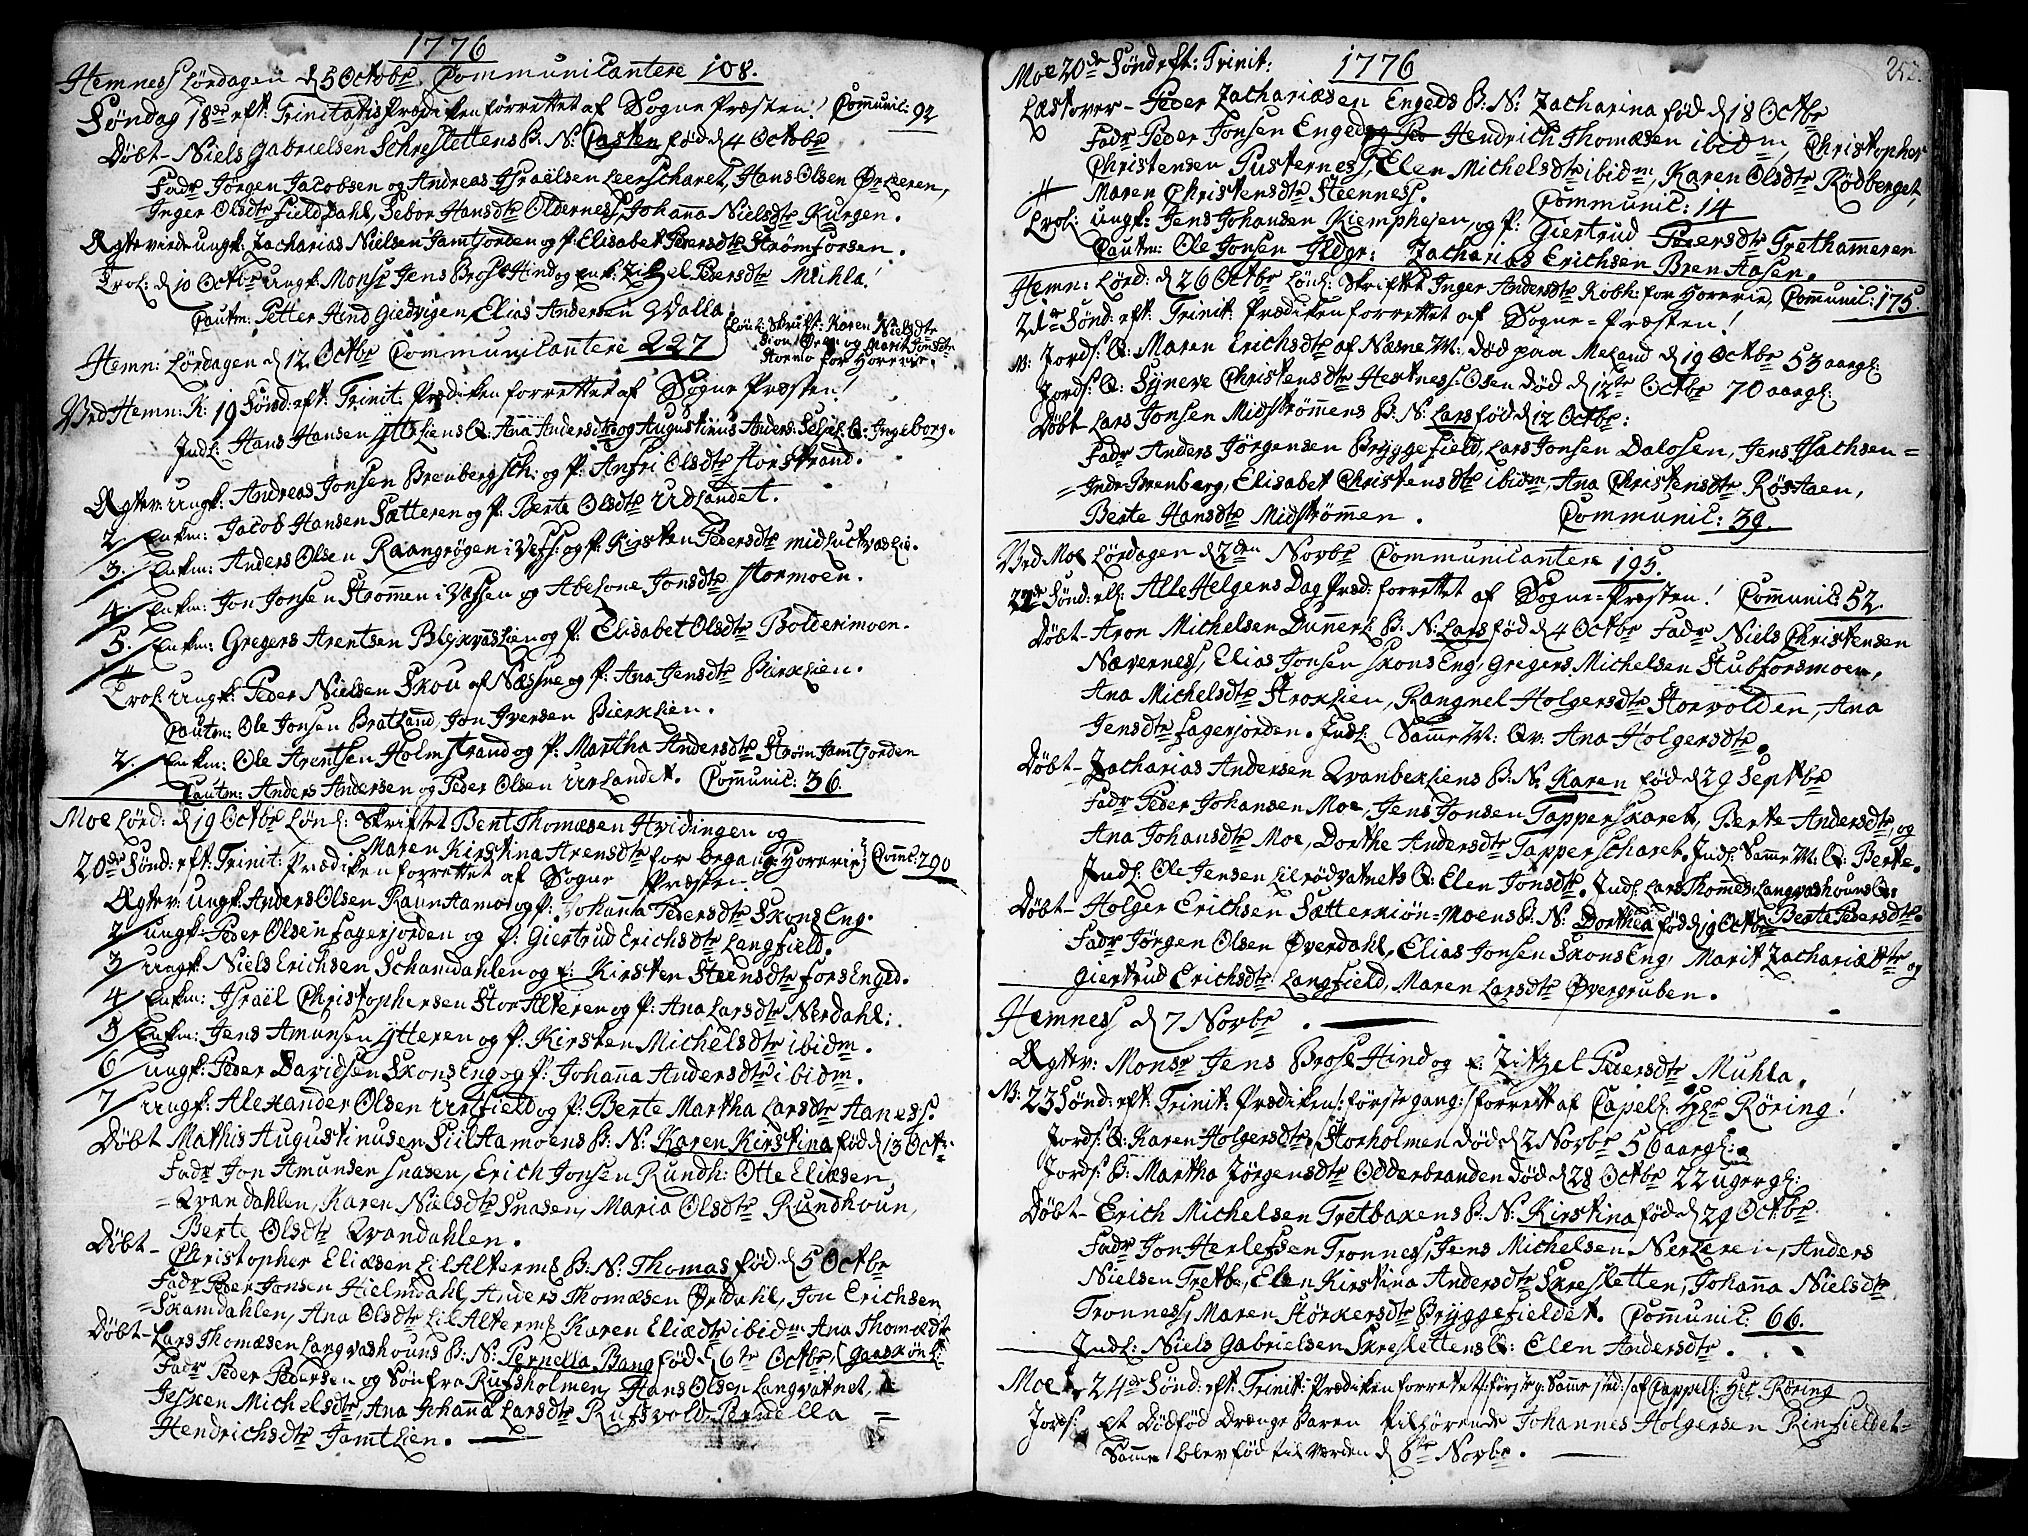 1776
Hemness Lørdagen d 5 Octobr Communicantere 108.
Søndag 18de eft: Trinitatis Prædiken forrettet af Sogne Præsten! Communic: 92
Døbt - Niels Gabrielsen Schreslettens B: N: Casten fød d 4 Octobr
Fadr Jørgen Jacobsen og Andreas Israëlsen Leerscharet, Hans Olsen Ørleeren,
Inger Olsdtr Field Dahl, Sebor Hansdtr Olderness, Johanna Nielsdtr Kurgen.
Ægteviede ungk: Zacharias Nielsen Jamtjorden og P: Elisabet Pedersdtr Strømforsen.
Trol: d 10 Octbr ungk: Monsr Jens Brose Hind og Enk: Zitzel Pedersdtr Muhla!
Cautm: Petter Hind Giedvigen, Elias Andersen Walla.
Hemn: Lørdagen d 12 Octbr Communicantere 227
Lønl: Skrift: Karen Nielsdtr
og Marit Jonsdtr
Stormo for Horerie.
Ved Hemn: K: 19 Sønd: eft: Trinit. Prædiken forrettet af Sogne Præsten!
Indl: Hans Hansen Ytterliens Q: Ana Andersdtr og Augustinus Anders: Q: Ingeborg.
Ægtev: ungk: Andreas Jonsen Brenbergsch: og P: Anfri Olsdtr Storstrand.
2. Enkm: Jacob Hansen Sætteren og P: Berte Olsdtr Udlandet.
3. Enkm: Anders Olsen Raangrøgen i Vefs: og P: Kirsten Pedersdtr Midluctvaslie.
4. Enkm: Jon Jonsen Strømmen i Væssen og Abelone Jonsdtr Stormoen.
5. Enkm: Gregers Arentsen Bleikvaslien og P: Elisabet Olsdtr Bolderimoen.
Trol: ungk: Peder Nielsen Skou af Næsne og P: Ana Jensdtr Bierklien.
Cautm: Ole Jonsen Bratland, Jon Iversen Bierklien.
2. Enkm: Ole Arentsen Holmstrand og P: Martha Andersdtr Strøm Jamtjorden
Cautm: Anders Andersen og Peder Olsen Urlandet. Communic: 36.
Moe Lørd: d 19 Octbr Lønl: Skriftet Bent Thomæsen Hvidingen og
Maren Kirstina Arensdtr for begaaet Horerie, Comm: 290
20de Sønd: eft: Trinit: Prædiken forrettet af Sogne Præsten.
Ægtev: ungk: Anders Olsen Raunaamo og P: Johanna Pedersdtr Skons Eng.
2 ungk: Peder Olsen Fagerjorden og P: Giertrud Erichsdtr Langfield.
3 ungk: Niels Erichsen Schamdahlen og P: Kirsten Steensdtr Fors Enged.
4 Enkm: Israël Christophersen Stor Alteren og P: Ana Larsdtr Nerdahl:
5 Enkm: Jens Amunsen Ytteren og P: Kirsten Michelsdtr ibidm.
6 ungk: Peder Davidsen Skons Eng og P: Johanna Andersdtr ibidm.
7 ungk: Alexander Olsen Urtfield og P: Berte Martha Larsdtr Aaness.
Døbt Mathis Augustinusen Siilaamoens B: N: Karen Kirstina fød d 13 Oct:
Fadr Jon Amunsen Snasen, Erich Jonsen Rundh: Otte Eliæsen
= Qvandahlen, Karen Nielsdtr Snasen, Maria Olsdtr Rundhoun,
Berte Olsdtr Qvandahlen.
Døbt - Christopher Eliæsen Lil Alterns B: N: Thomas fød d 5 Octbr
Fadr Peder Jonsen Hielmdahl, Anders Thomæsen Ørdahl, Jon Erichsen
= Skamdahlen, Ana Olsdtr Lil Alterns Karen Eliædtr ibidm Ana Thomædtr
Døbt - Lars Thomæsen Langvashouns B: N: Pernella Bang fød d 6te Octbr. (Gaaskiønl:
Fadr Peder Pedersen og Søn fra Rufsholmen, Hans Olsen Langvatnet,
Jesken Michelsdtr, Ana Johanna Larsdtr Rufsvold, Pernella =
Hendrichsdtr Jamtlien.
1776
252.
Moe 20de Sønd eft: Trinit:
Læst over - Peder Zachariæsen Engeds B: N: Zacharina fød d 18 Octbr
Fadr Peder Jonsen Enged Hendrich Thomæsen ibidm, Christopher
Christensen Pusternes, Elen Michelsdtr ibidm, Karen Olsdtr Rødberget,
Maren Christensdtr Steenness. Communic: 14
Trol: ungk: Jens Johansen Kiempheien, og P: Giertrud Pedersdtr Trethammeren
Cautm: Ole Jonsen Ildgr: Zacharias Erichsen Bren Aasen.
Hemn: Lørd: d 26 Octbr Lønl: Skriftet Inger Andersdtr Kobh: for Horerie, Communic: 175
21de Sønd: eft: Trinit: Prædiken forrettet af Sogne-Præsten!
N: Jords: Q: Maren Erichsdtr af Næsne M: død paa Meland d 19 Octbr 53 aar gl:
Jords: Q: Syneve Christensdtr Hestness Osen død d 12te Octbr 70 aar gl:
Døbt - Lars Jonsen Midstrømens B: N: Lars fød d 12 Octbr:
Fadr Anders Jørgensen Bryggefield, Lars Jonsen Dalosen, Jens Isachsen =
= Indr Brenberg, Elisabet Christensdtr ibidm, Ana Christensdtr Røsaaen,
Berte Hansdtr Midstrømmen. Communic: 39.
Ved Moe Lørdagen d 2den Novbr Communicantere 195.
22de Sønd: ell: Alle Helgens Dag Præd: forrettet af Sogne-Præsten! Communic: 52
Døbt - Aron Michelsen Dunnerl: B: N: Lars fød d 4 Octbr Fadr Niels Christensen
Nævernes, Elias Jonsen Skons Eng, Gregers Michelsen Stubforsmoen,
Ana Michelsdtr Stroklien, Rangnel Holgersdtr Storvolden, Ana
Jensdtr Fagerjorden. Indl: Samme M: Qv: Ana Holgersdtr.
Døbt - Zacharias Andersen Qvanbekliens B: N: Karen fød d 29 Septbr
Fadr Peder Johansen Moe, Jens Jonsen Tapperskaret, Berte Andersdtr, og
Ana Johansdtr Moe, Dorthe Andersdtr Tapperscharet. Indl: Samme M: Q: Berte.
Indl: Ole Jensen Lilrødvatnets Q: Elen Jonsdtr. Indl: Lars Thomes: Langvashouns Q:
Døbt - Holger Erichsen Sætterkiøn-Moens B: N: Dorthea fød d 19 Octbr Berte Pedersdtr.
Fadr Jørgen Olsen Øverdahl, Elias Jonsen Skons Eng, Marit Zachariædtr og
Giertrud Erichsdtr Langfield, Maren Larsdtr Øvergruben.
Hemness d 7 Novbr.
Ægtev: Monsr Jens Brose Hind og E: Zitzel Pedersdtr Muhla.
N: 23 Sønd: eft: Trinit: Prædiken /: første gang :/ forrett af Capell: Hr: Røring!
Jords: Q: Karen Holgersdtr Storholmen død d 2 Novbr 56 aar gl:
Jords: B: Martha Jørgensdtr Odderbranden død d 28 Octbr 22 uger gl:
Døbt - Erich Michelsen Tretbakens B: N: Kirstina fød d 29 Octbr
Fadr Jon Herlefsen Tronness, Jens Michelsen Nerleren, Anders
Nielsen Tretb:, Elen Kirstina Andersdtr Skresletten, Johanna Nielsdtr
Tronness, Maren Størkersdtr Bryggefieldet. Communic: 66.
Indl: Niels Gabrielsen Skreslettens Q: Elen Andersdtr.
Moe 24de Sønd: eft: Trinit: Prædiken forrettet /: først g: Samme sted :/ af Cappell: Hr: Røring
Jords: Et Dødfød Drænge Baren tilhørende Johannes Holgersen Rinfieldet -
Samme blev fød til Verden d 6te Novbr.